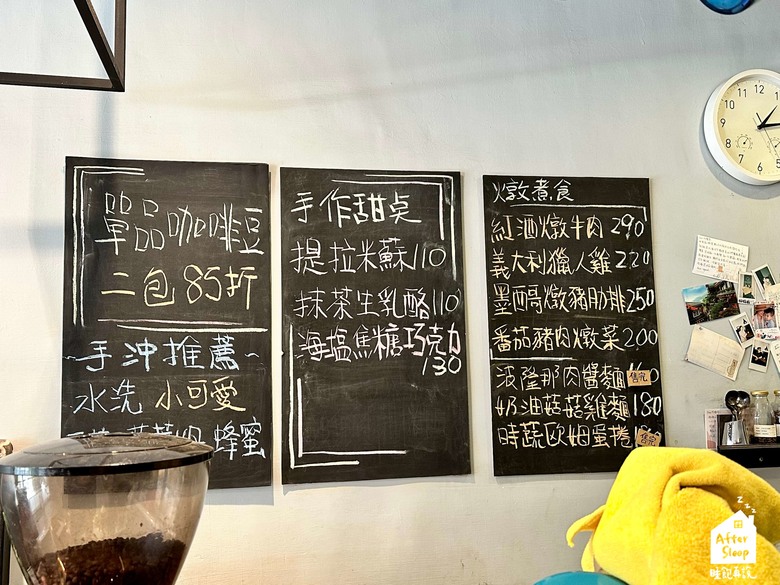 單品咖啡豆
二包85折
~手沖推薦~
水洗 小可愛
蜂蜜
手作甜点
提拉米蘇110
抹茶生乳酪110
海塩焦糖巧克力
130
燉煮食
紅酒燉牛肉 290
義大利獵人雞 220
墨西哥燉豬肋排250
番茄豬肉燉菜200
波隆那肉醬麵 售完
奶油菇菇雞麵180
時蔬歐姆蛋捲 售完
12
11
10
9
8
7
6
zzz
After
Sleep
睡飽再說